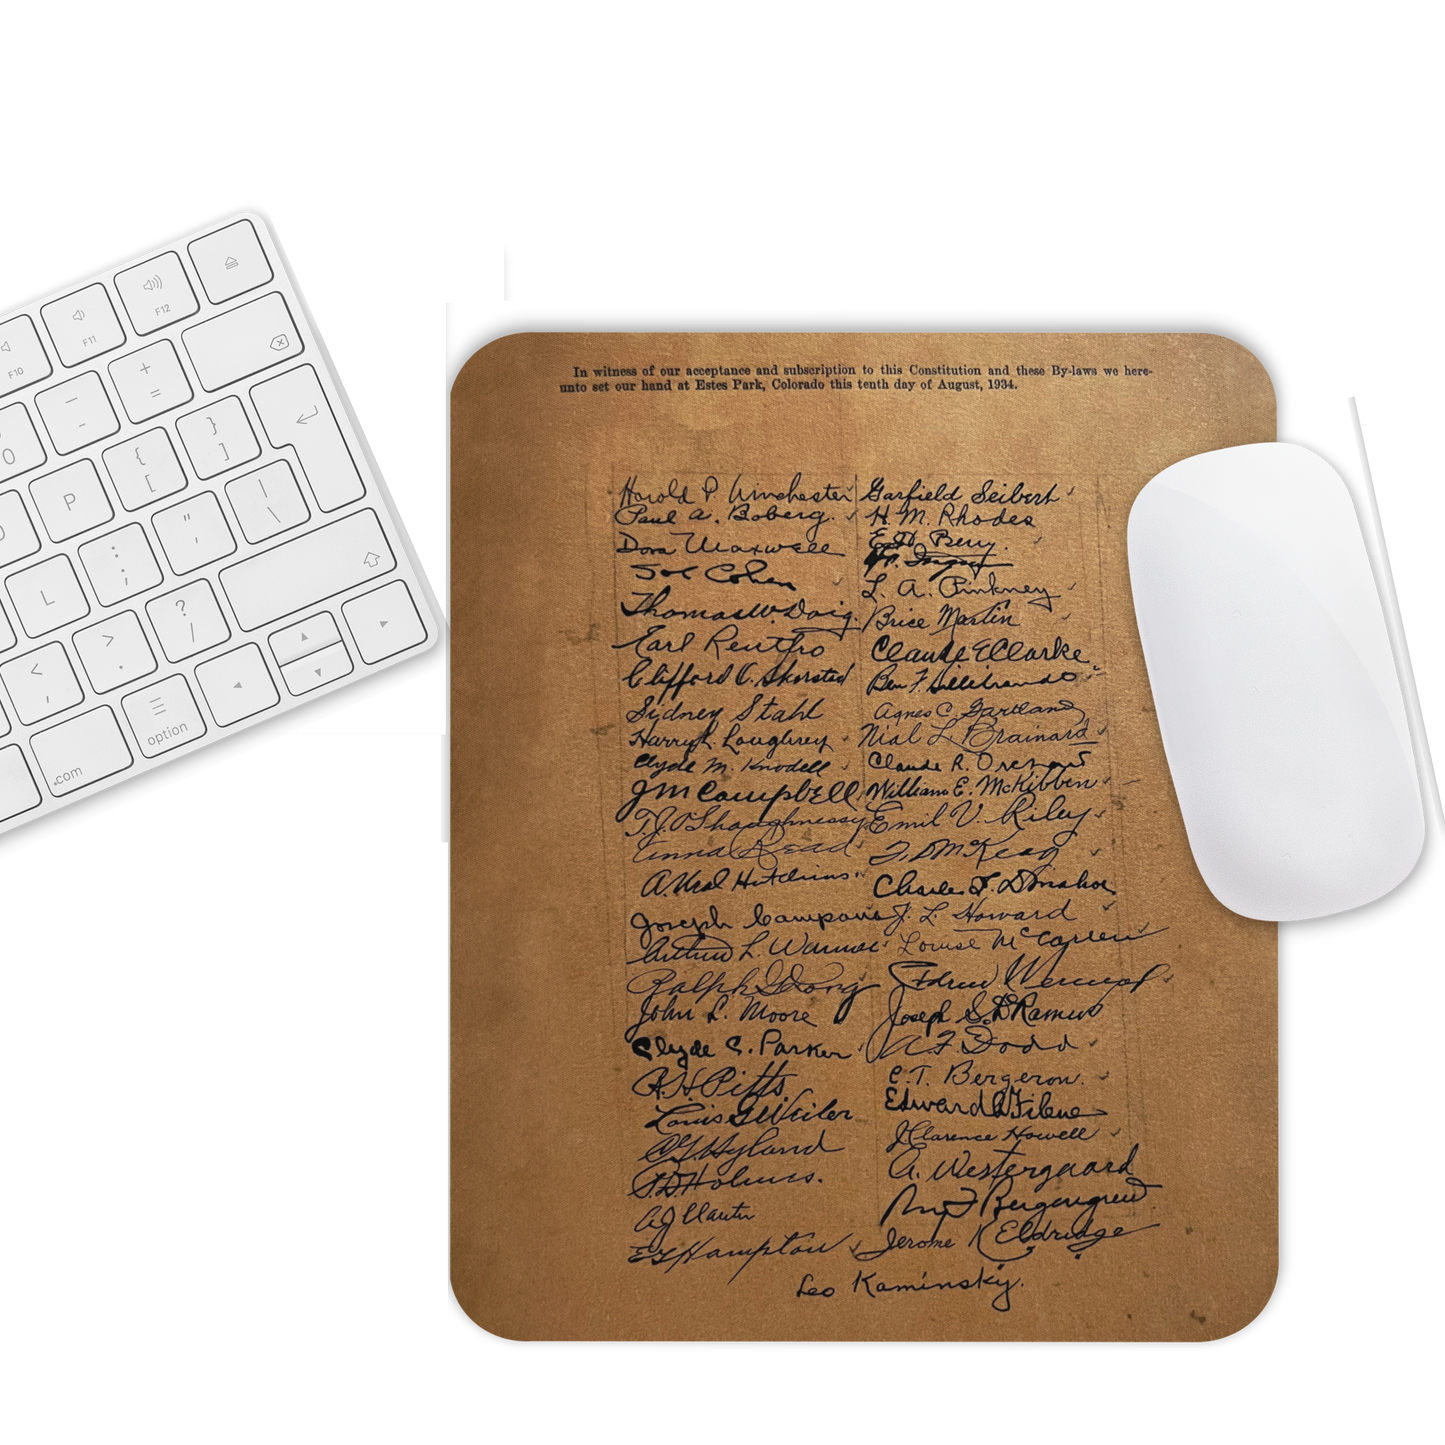 F10
F11
F12
+
=
_
-
{
[
}
]
P
|
\
"
'
:
;
L
?
/
>
.
<
,
option
.com
In witness of our acceptance and subscription to this Constitution and these By-laws we here-
unto set our hand at Estes Park, Colorado this tenth day of August, 1934.
Harold P Winchester Garfield Seibert
Paul A. Boberg. H. M. Rhodes
Dora Maxwell E. H. Berry.
Joe Cohen
L. A. Pinkney
Thomas W. Doig. Brice Martin
Earl Rentfro Claude E Clarke
Clifford O. Skorstad Ben F. Hillebrandt
Sidney Stahl Agnes C. Gartland
Harry Loughrey Nial L Brainard
Clyde M. Knodell Claude R. Orchard
J M Campbell William E. McKibben
T. J. O'Shaughnessy Emil V. Riley
Anna Read
A. Hutchins Charles F. Donahoe
Joseph Campana J. L. Howard
Arthur L. Warmac Louise McCarren
Ralph G Long
John L. Moore Joseph S. DeRamus
Clyde C. Parker A F Dodd
R. H. Pitts C. T. Bergeron.
Louis G Weiler Edward A Filene
Hyland J Clarence Howell
Holmes. A. Westergaard
Bergengren
Hampton Jerome K Eldridge
Leo Kaminsky.